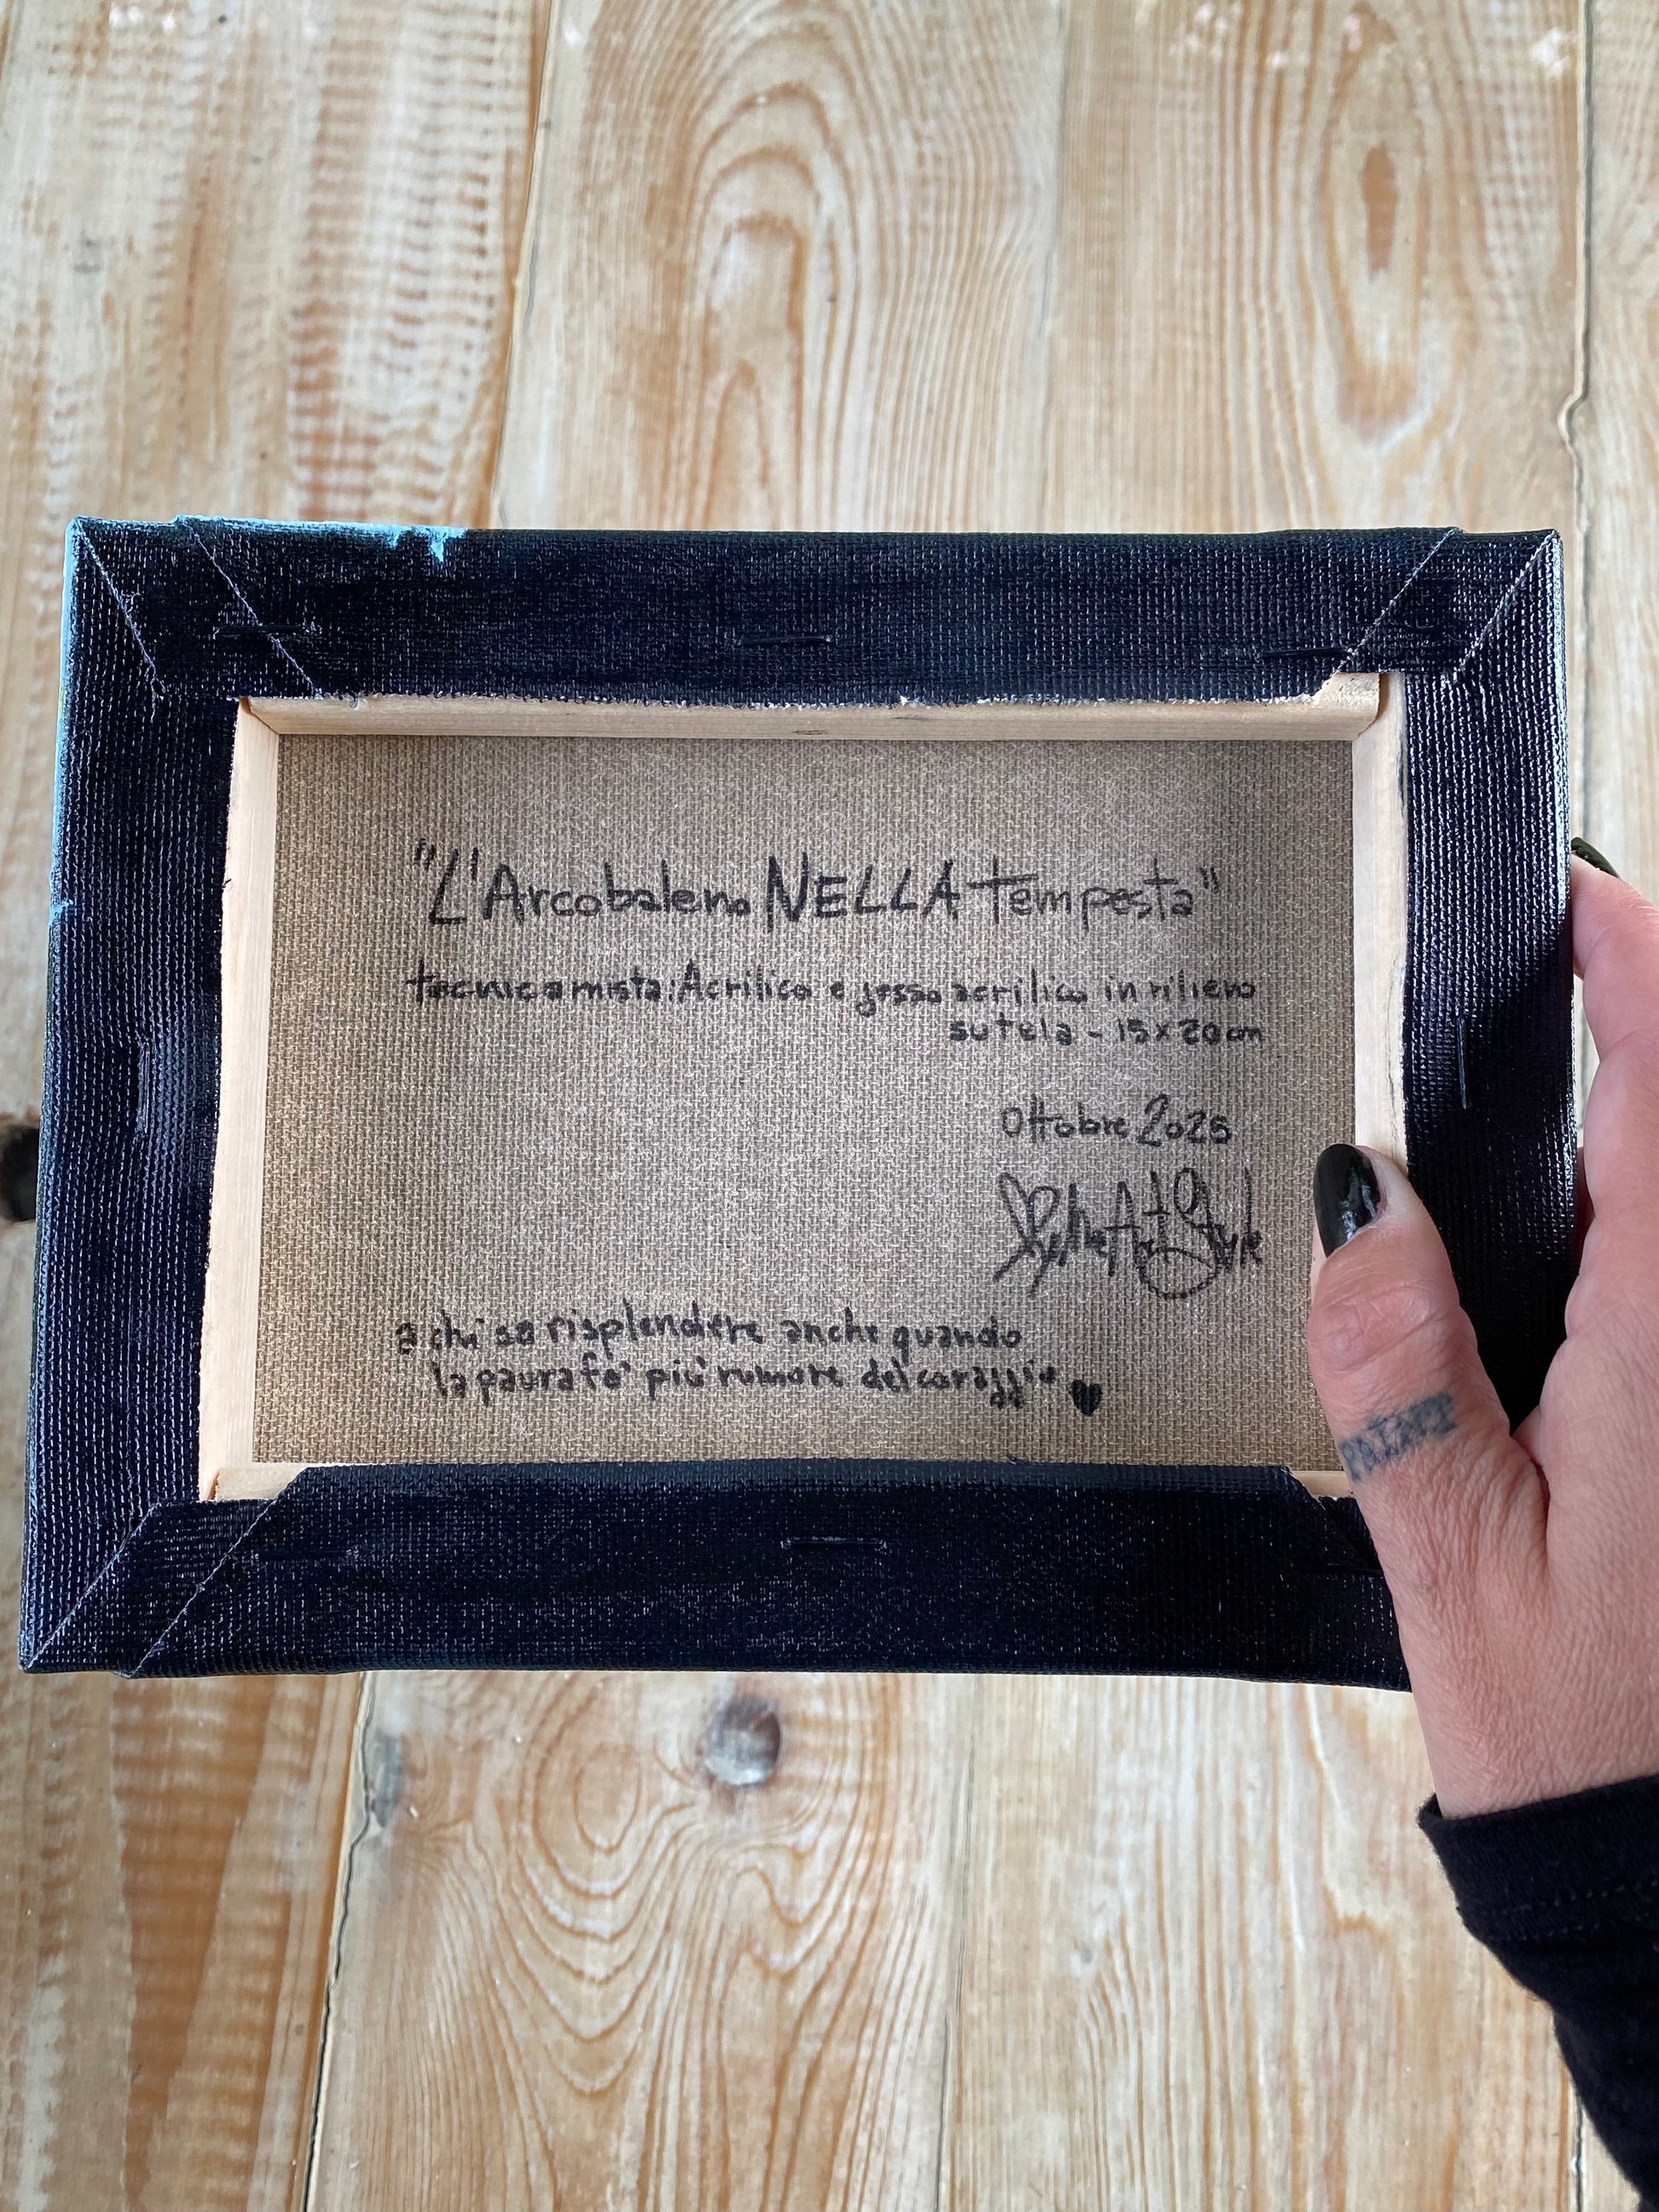 "L'Arcobaleno NELLA Tempesta"
tecnica mista: Acrilico e gesso acrilico in rilievo
su tela - 15x20cm
Ottobre 2025
Art Style
a chi sa risplendere anche quando
la paura fa più rumore del coraggio ♥